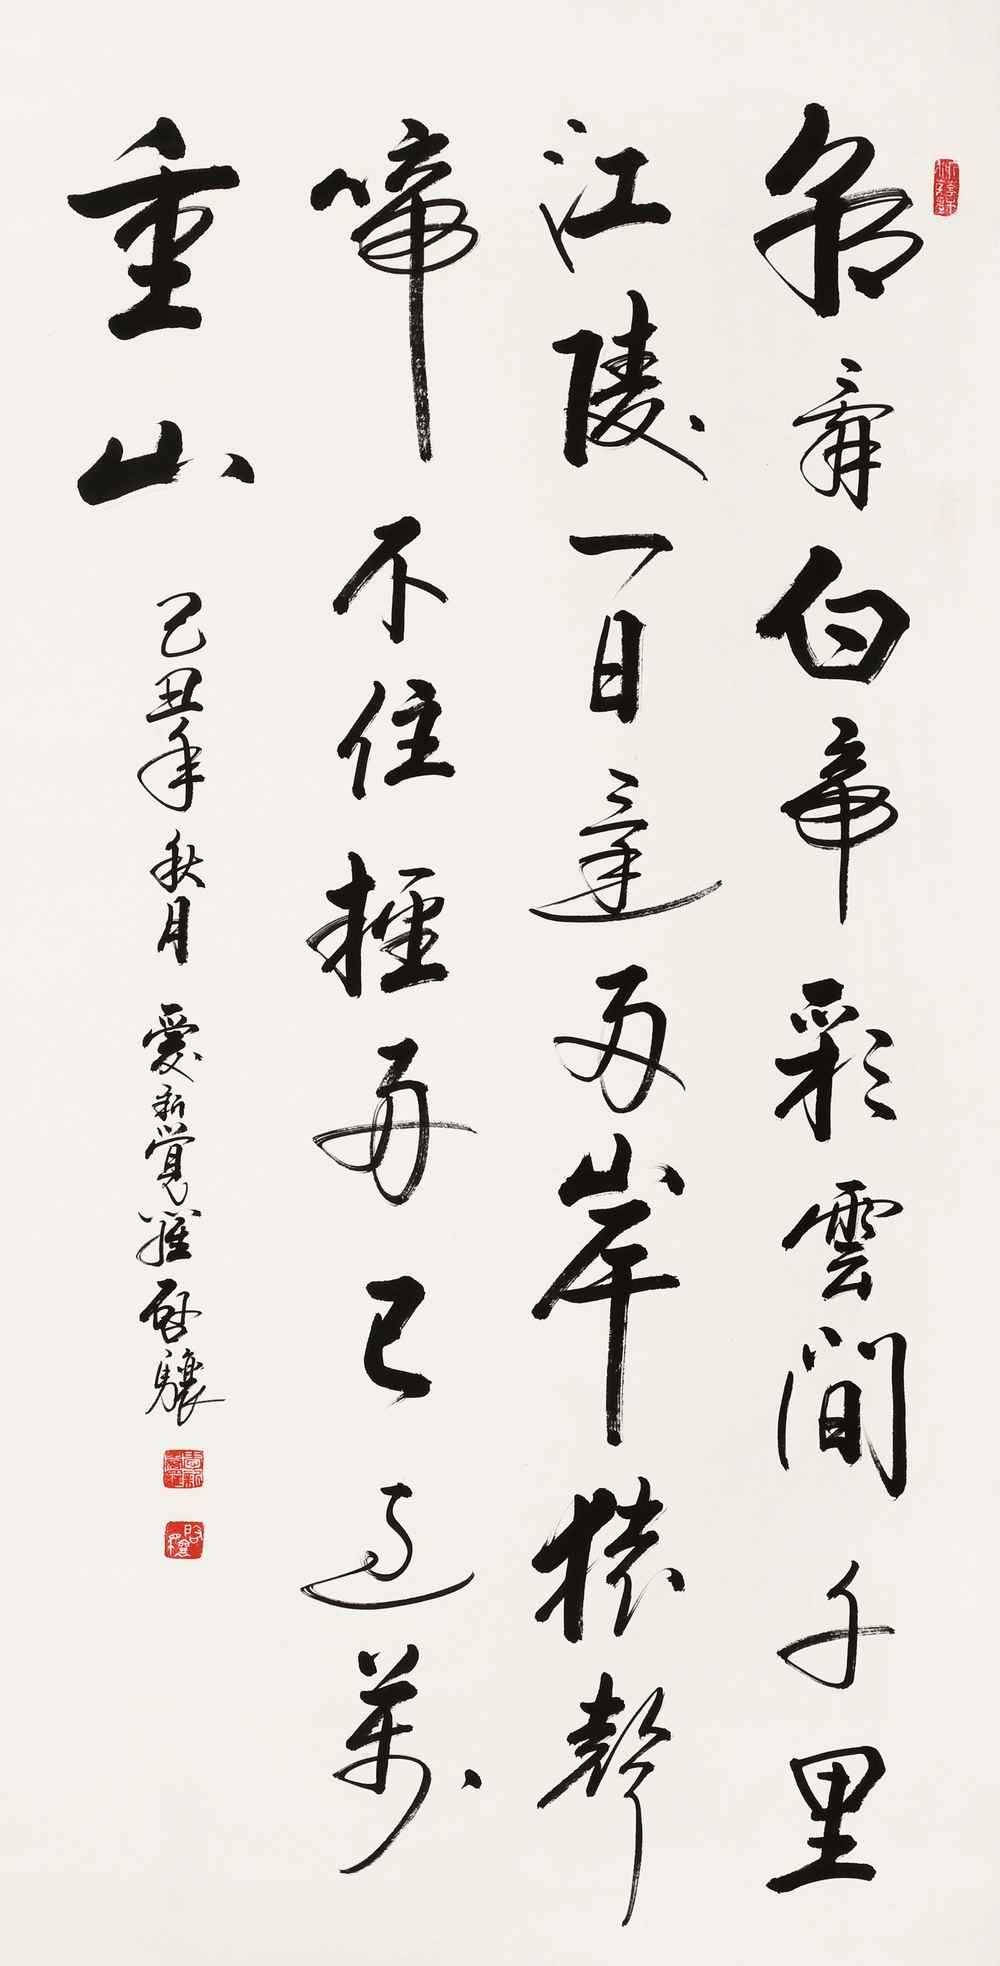 朝辭白帝彩雲間千里
江陵一日達兩岸猿聲
啼不住輕舟已過萬
重山
己丑年秋月 愛新覺羅啟驤